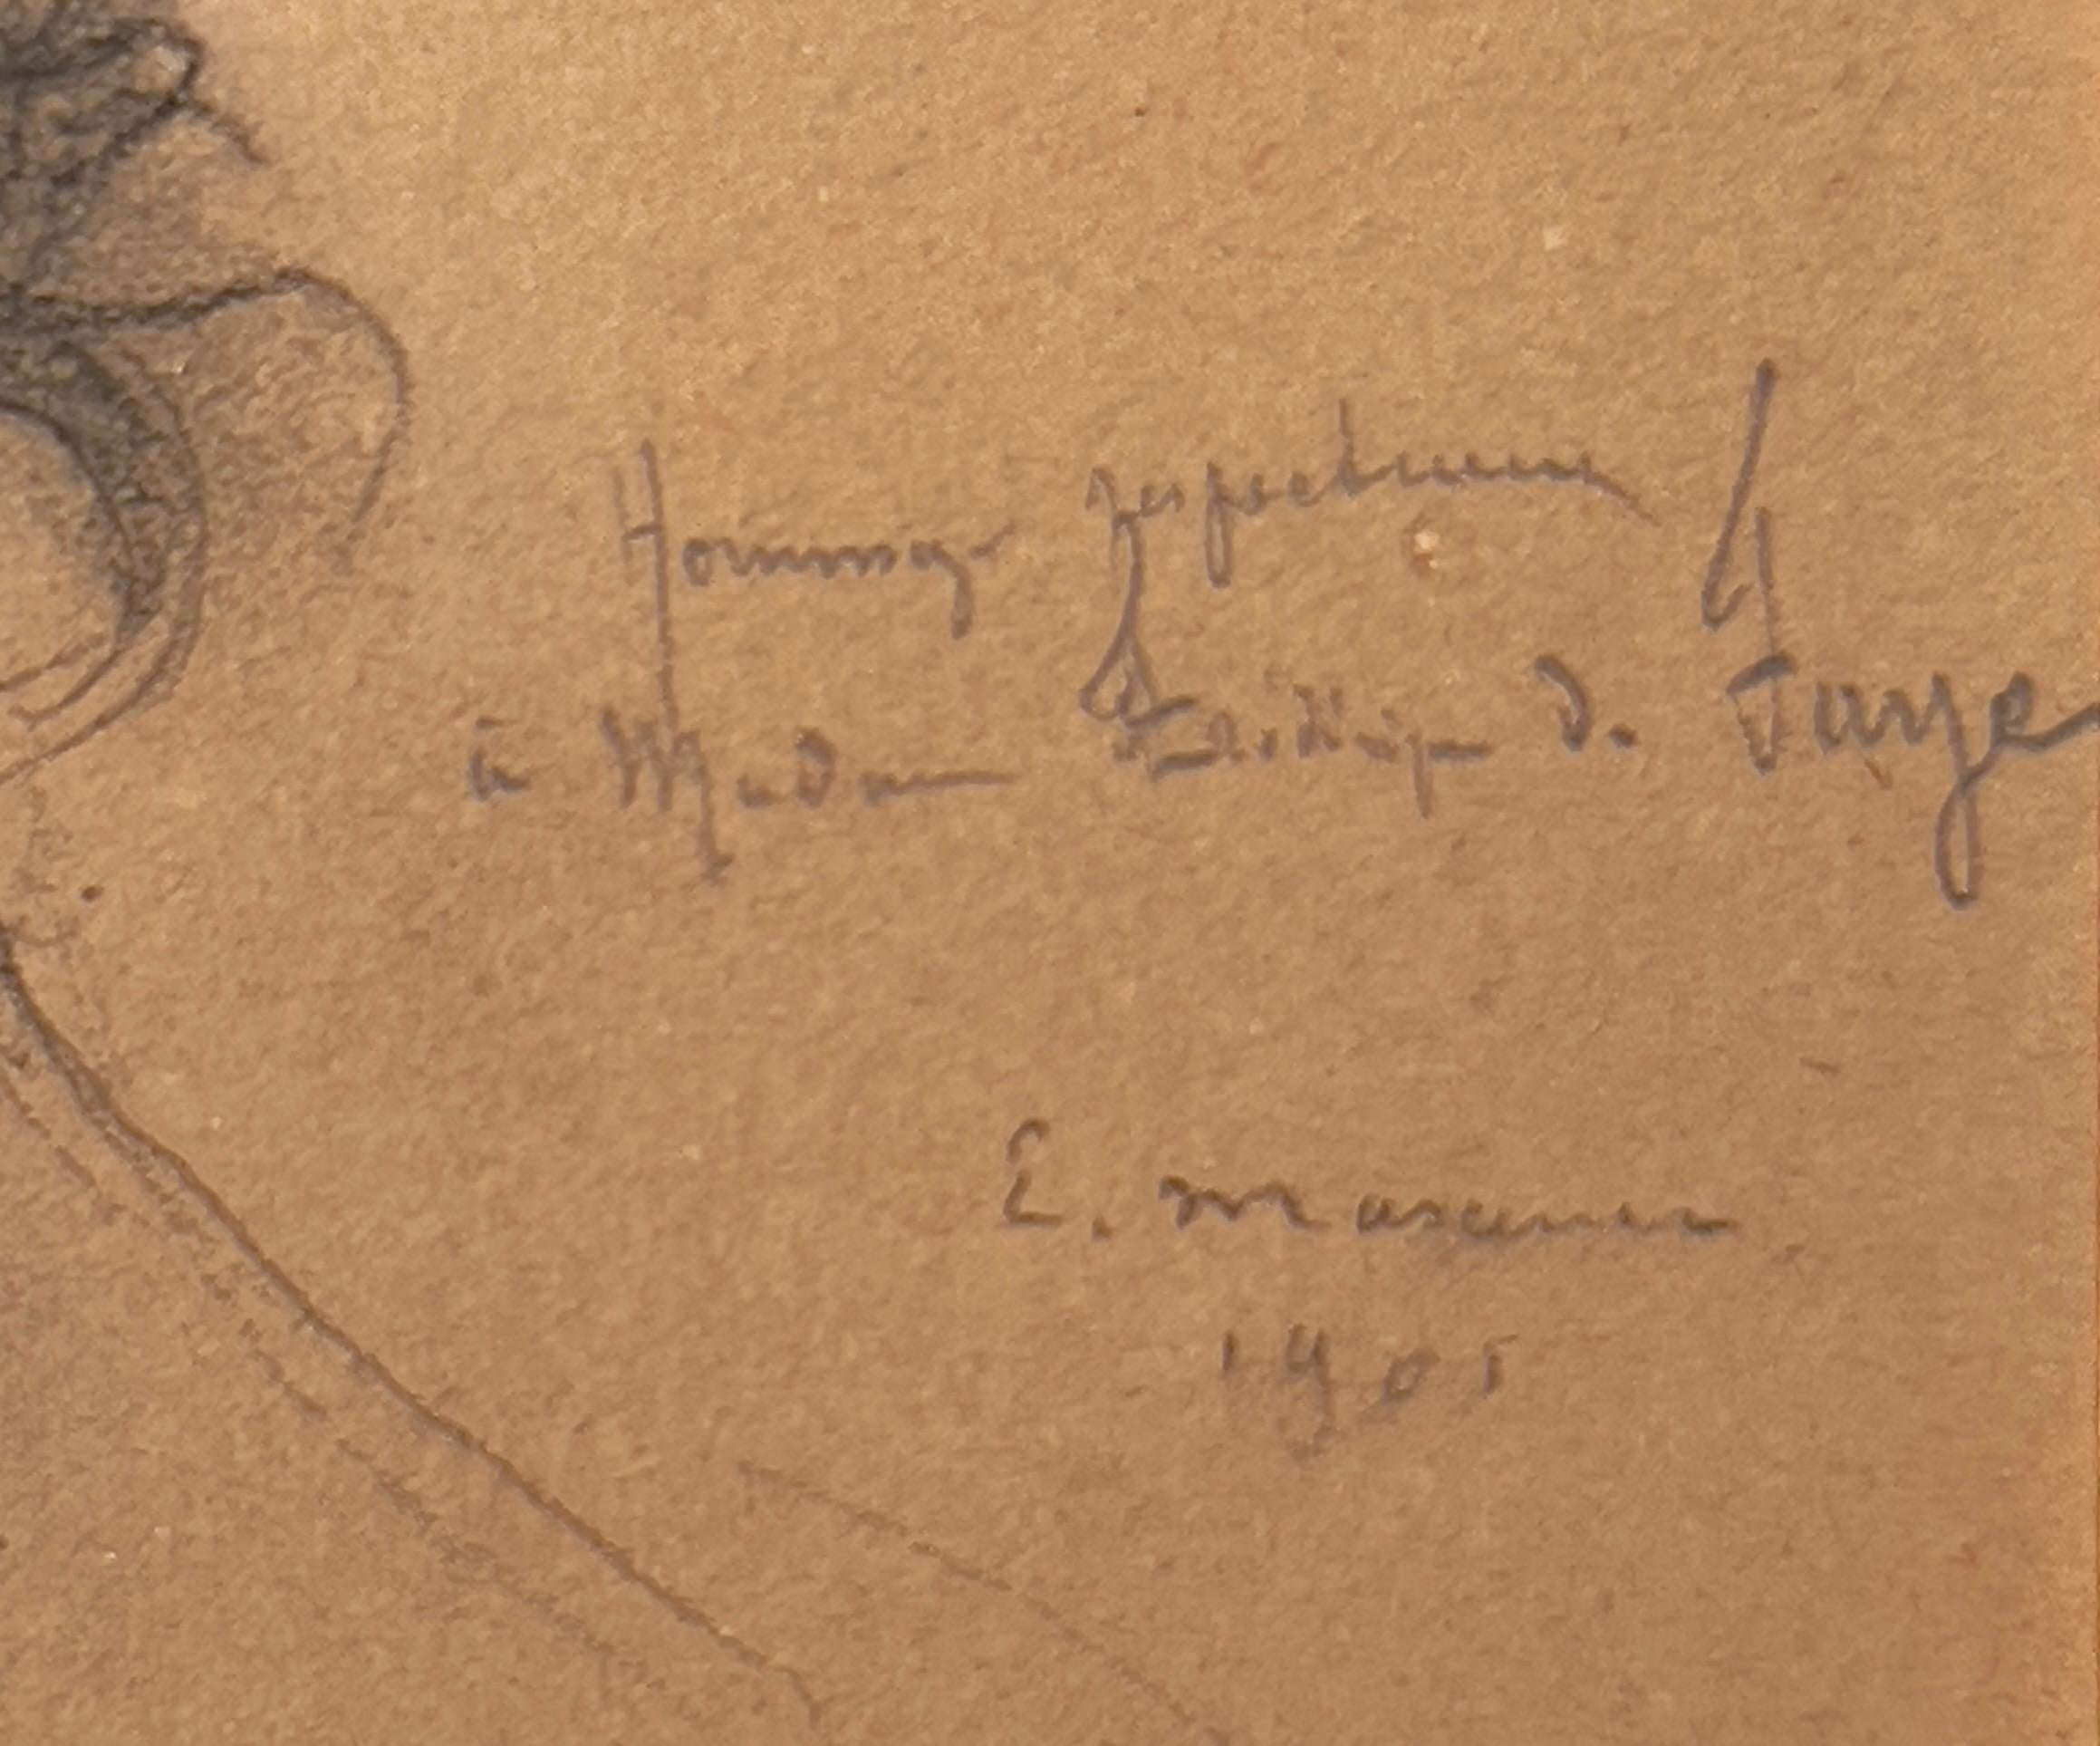 Hommage respectueux
à Madame Philippe de Farye
E. Maxence
1901